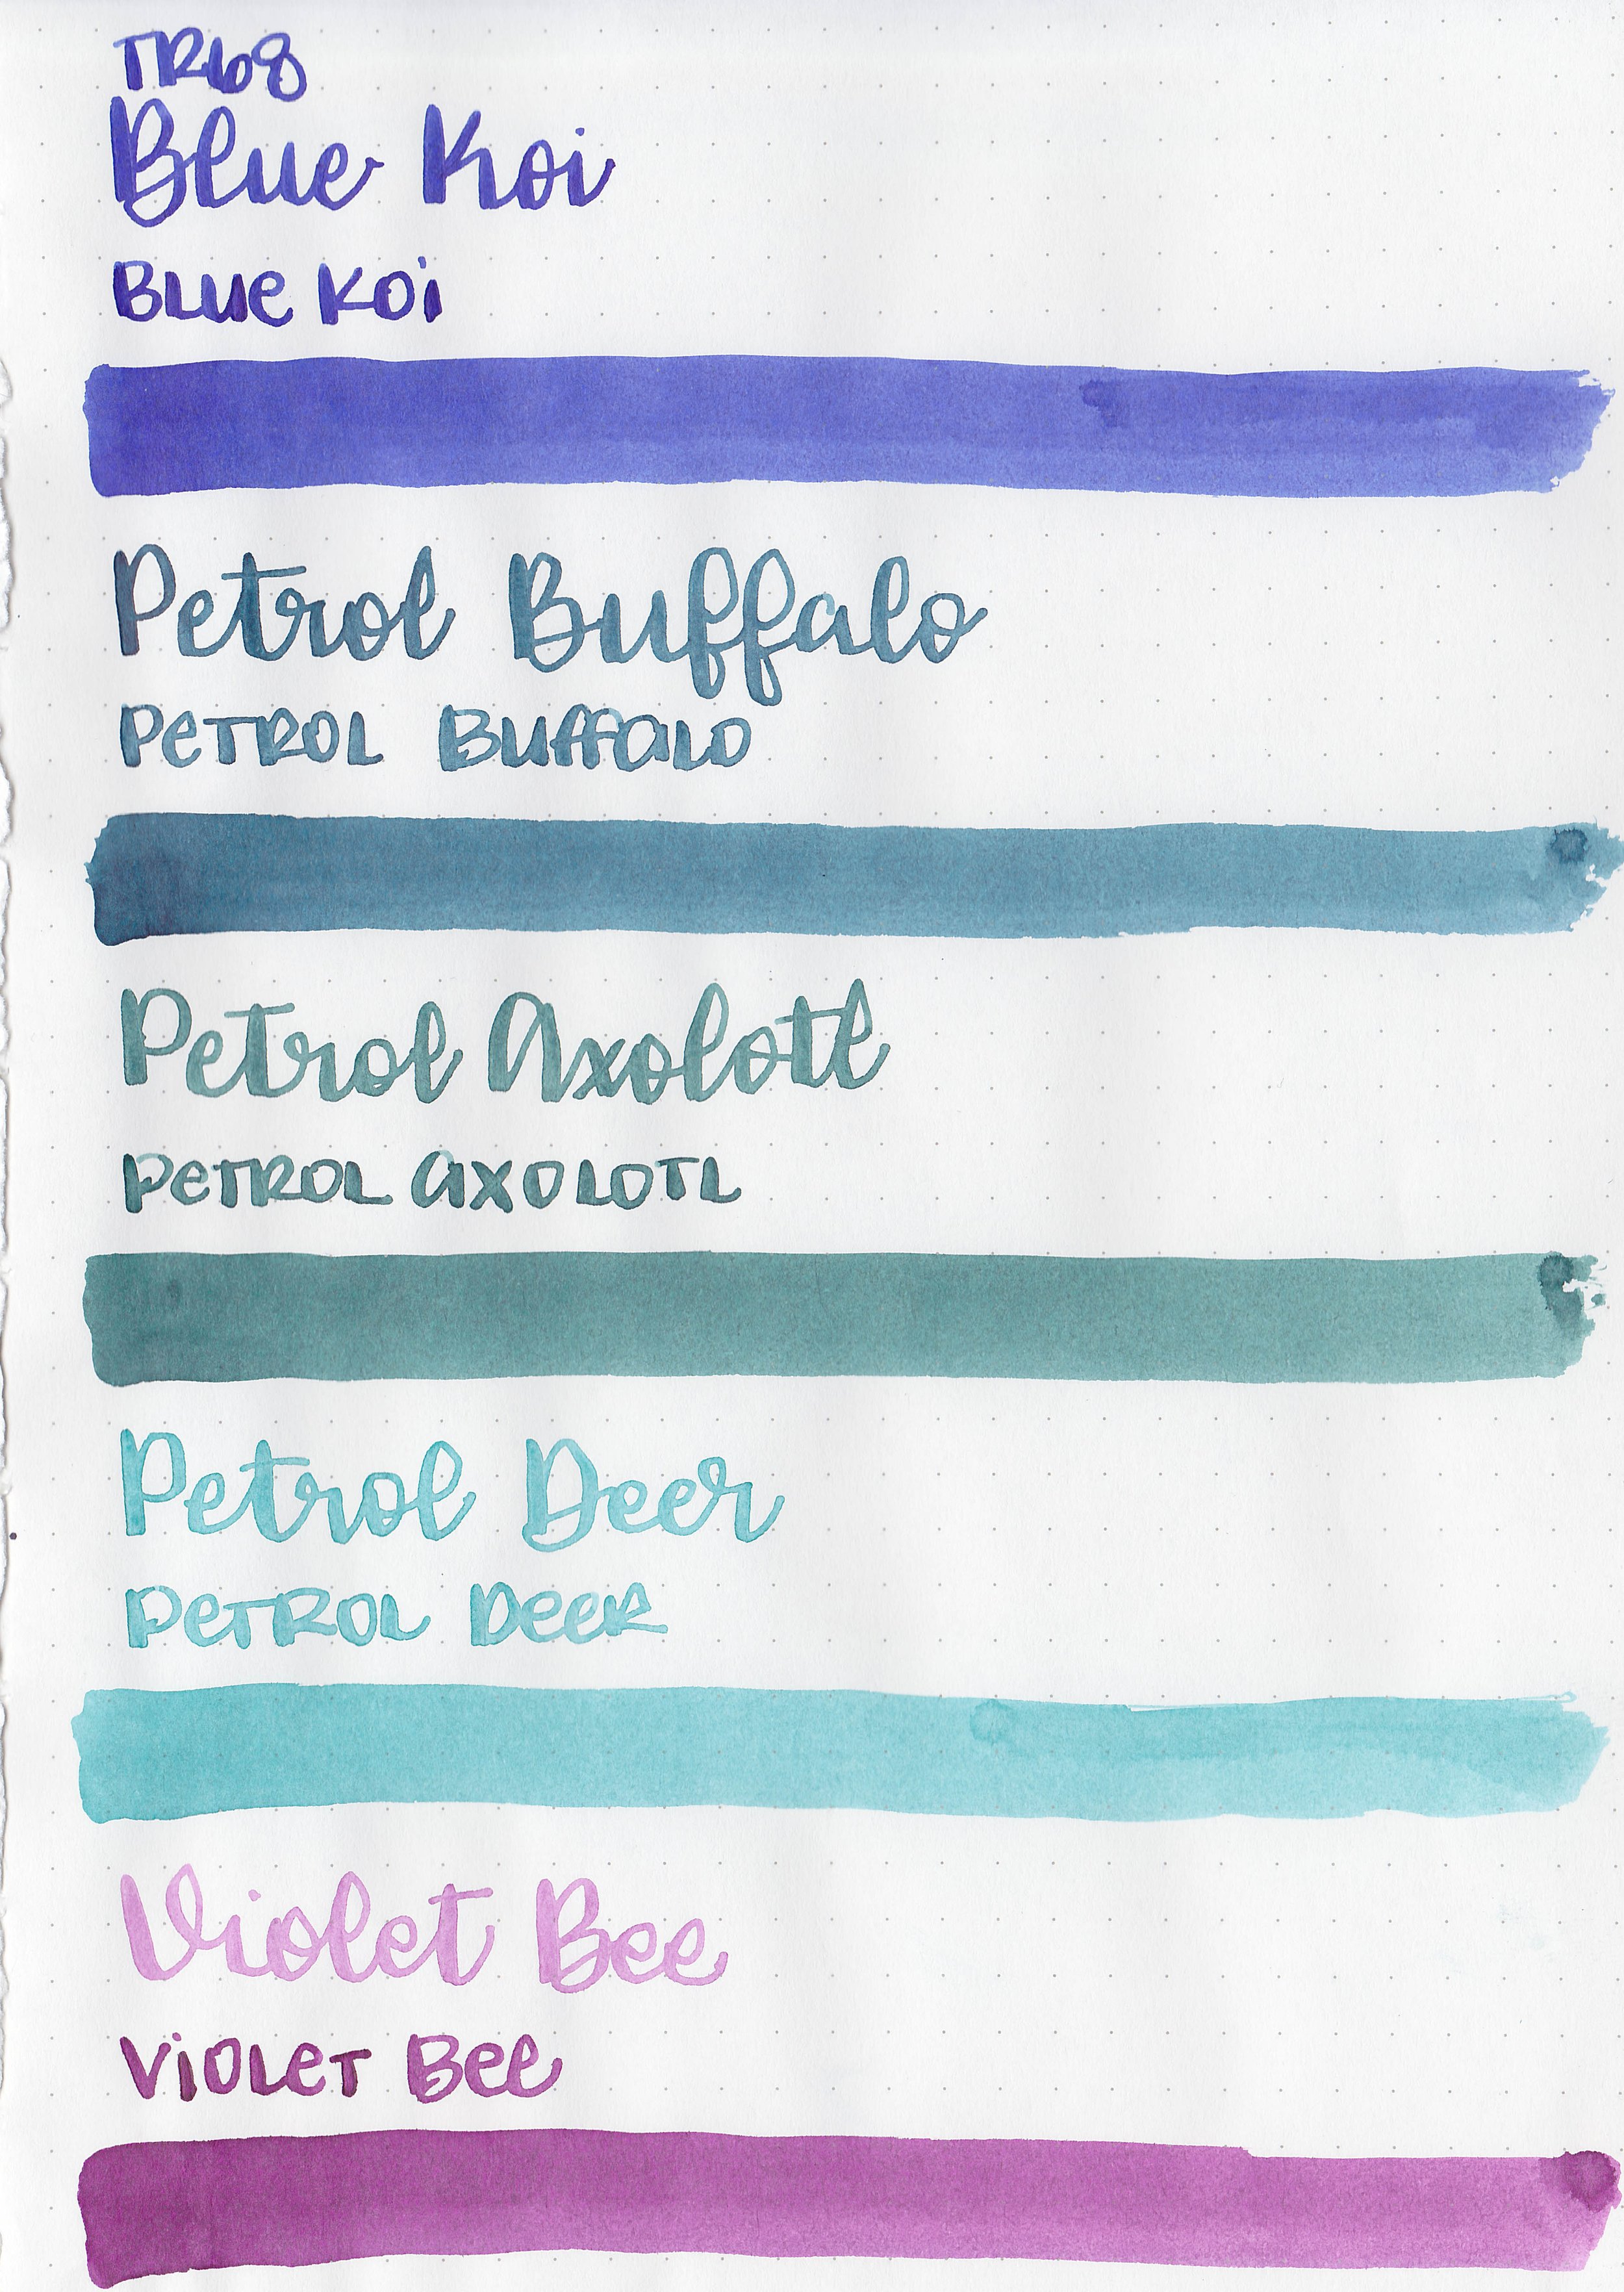 TR68
Blue Koi
BLUE KOi
Petrol Buffalo
PETROL BUffalo
Petrol Axolotl
PETROL AXOLOTL
Petrol Deer
PETROL DEER
Violet Bee
ViOLET Bee